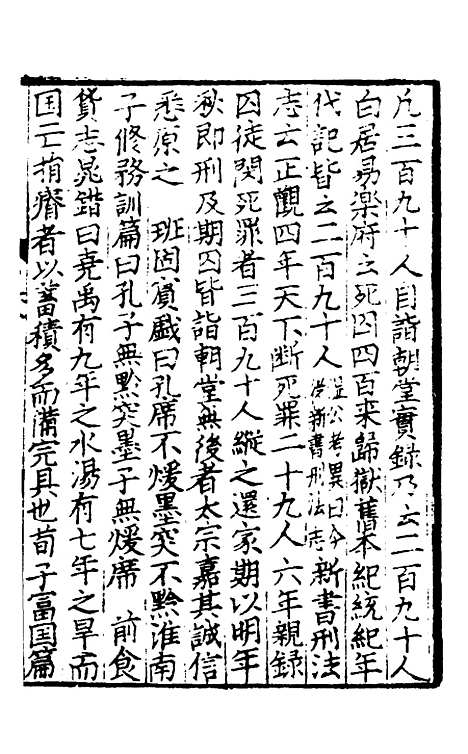 凡三百九十人自詣朝堂實錄乃云二百九十人
白居易樂府云死囚四百來歸獄舊本紀統紀年
代記皆云二百九十人温公考異曰今從新書刑法志新書刑法
志云正觀四年天下斷死罪二十九人六年親録
囚徒閔死罪者三百九十人縱之還家期以明年
秋即刑及期囚皆詣朝堂無後者太宗嘉其誠信
悉原之　班固賔戲曰孔席不煖墨突不黔淮南
子修務訓篇曰孔子無黔突墨子無煖席　前食
貨志晁錯曰堯禹有九年之水湯有七年之旱而
国亡捐瘠者以蓄積多而備完具也荀子富国篇